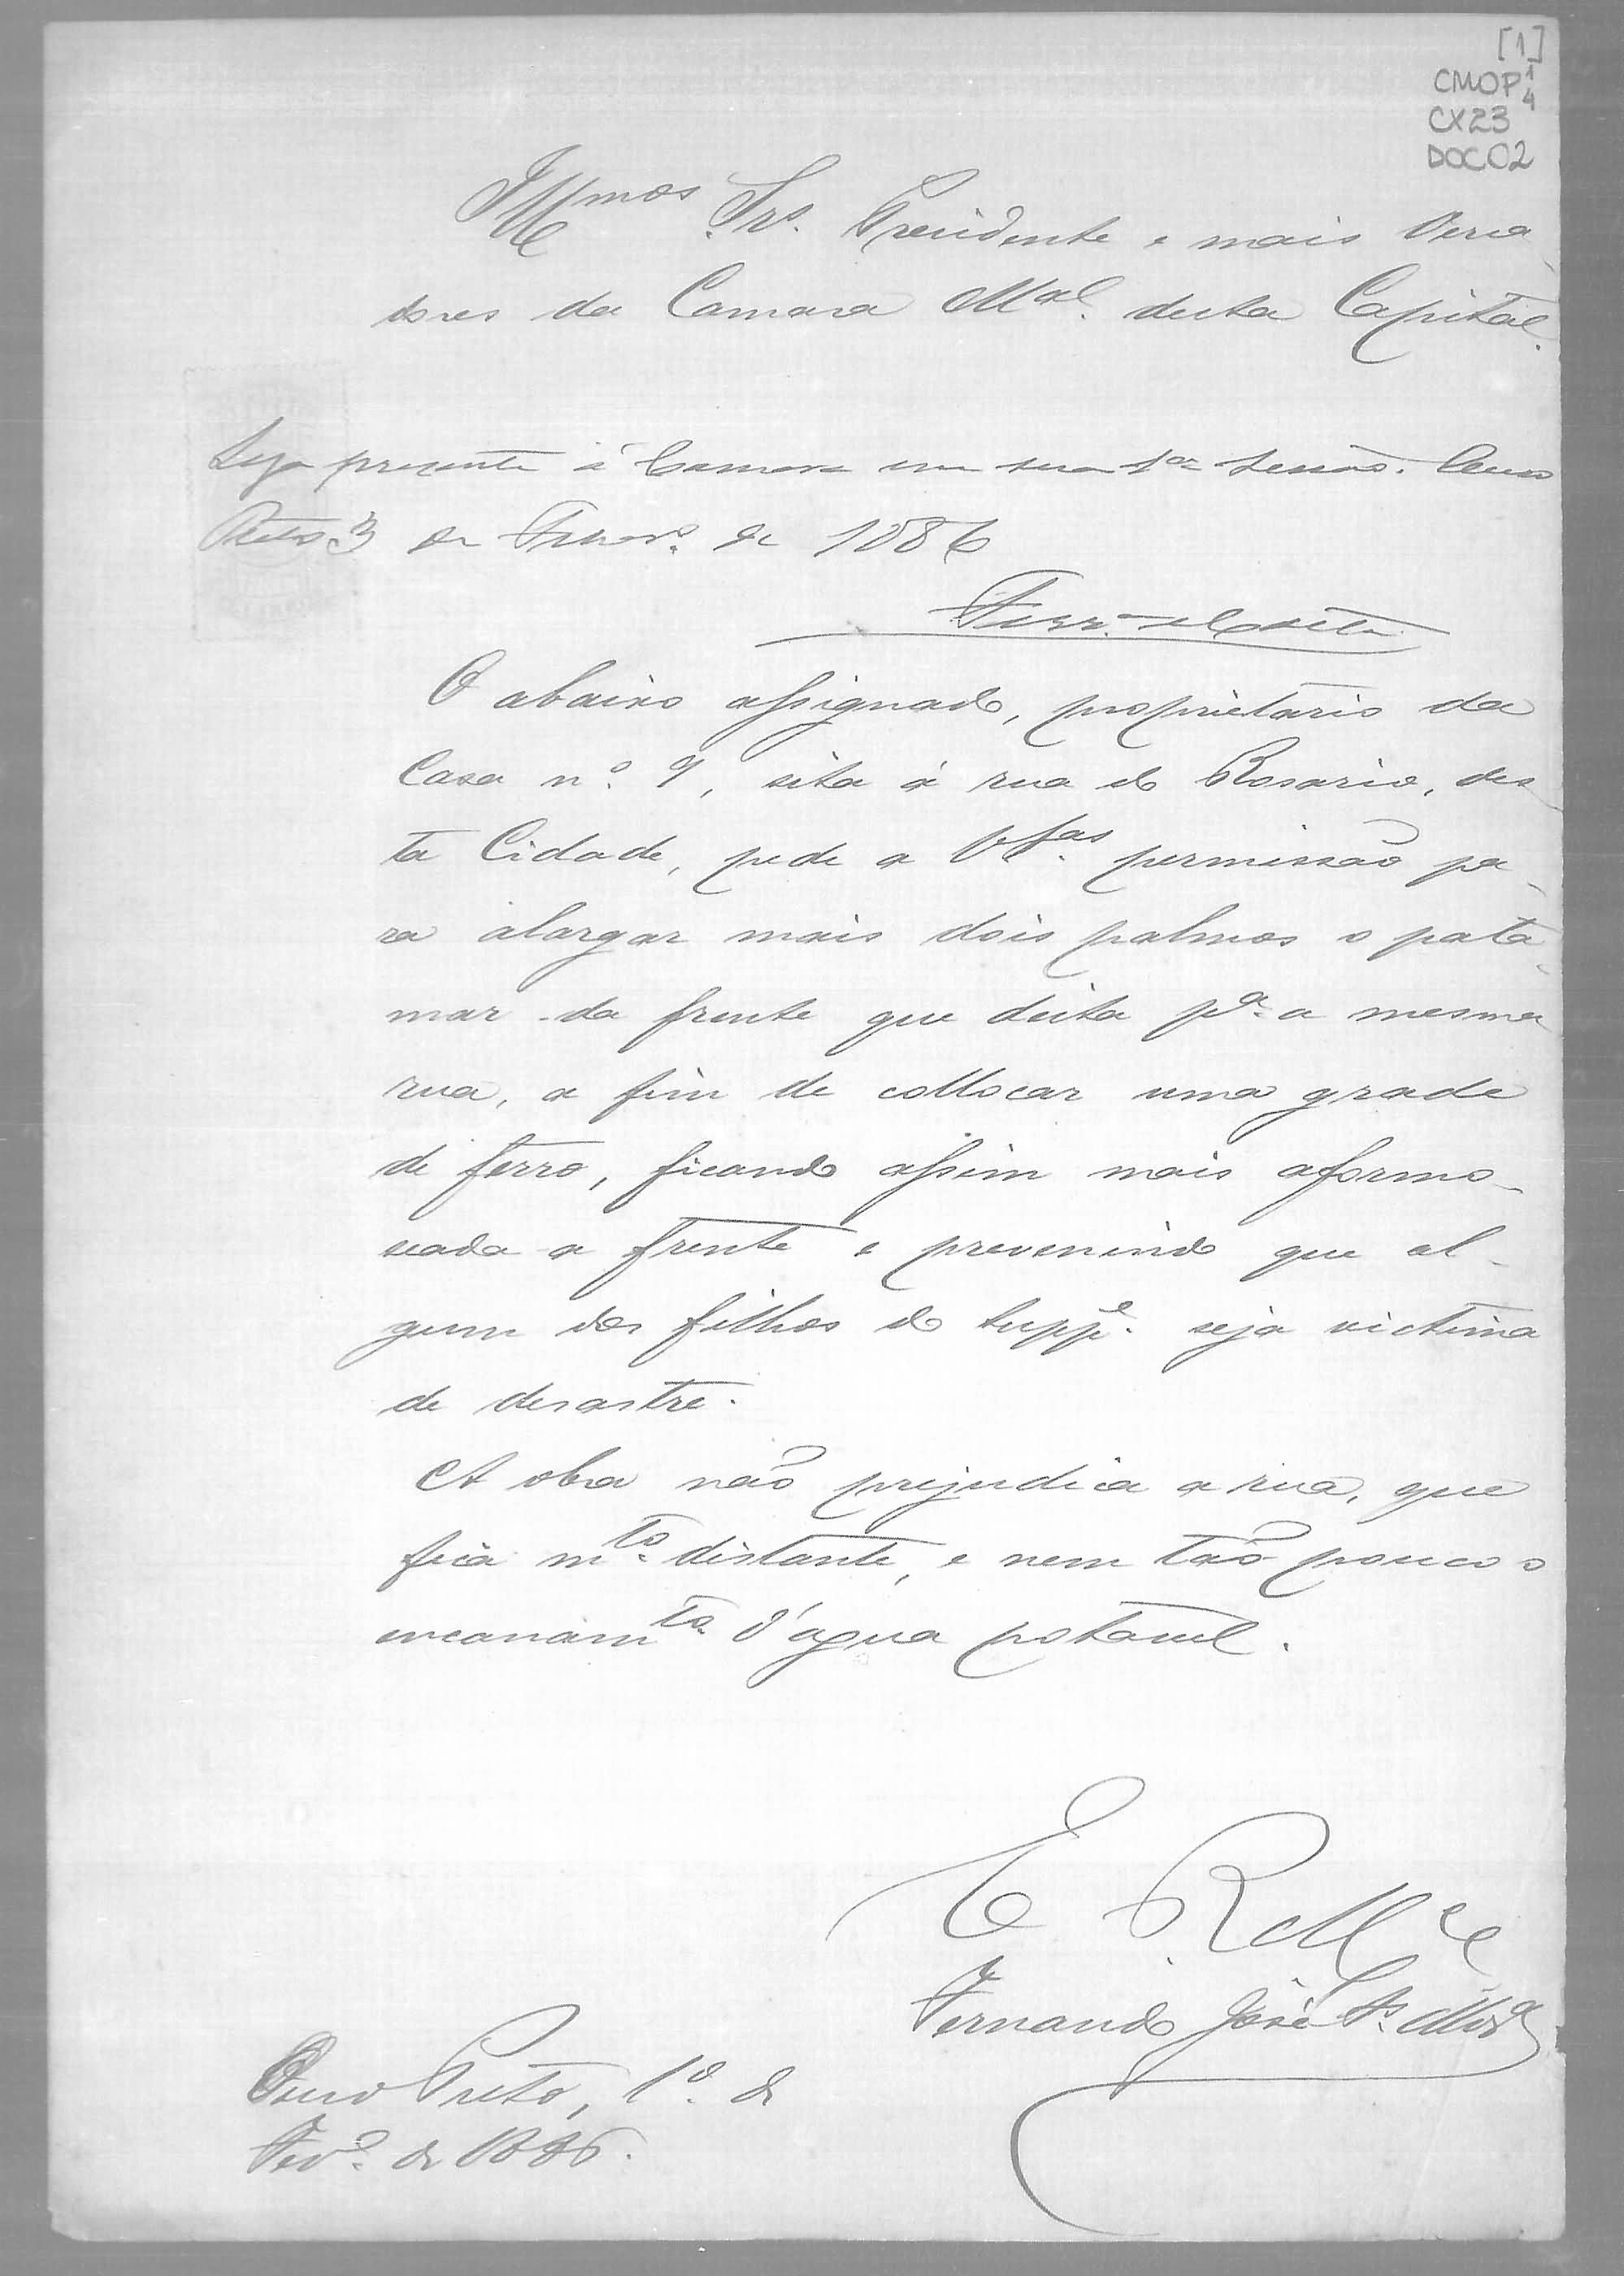 [1]
CMOP 1/4
CX23
DOC02
Illmos. Srs. Presidente e mais Verea-
dores da Camara Mal. desta Capital.
Seja presente á Camara em sua 1a sessão. Ouro
Preto 3 de Fevero. de 1886
O abaixo assignado, proprietario da
Casa nº. 9, sita á rua do Rosario, des-
ta Cidade, pede a VSas. permissão pa-
ra alargar mais dois palmos o pata-
mar da frente que deita pa. a mesma
rua, a fim de collocar uma grade
de ferro, ficando assim mais aformo-
seada a frente e prevenindo que al-
gum dos filhos do suppe. seja victima
de desastre.
A obra não prejudica a rua, que
fica mto. distante, e nem tão pouco o
encanamto. d'agua potavel.
E. R. Mce
Fernando José
Ouro Preto, 1º. de
Fevº. de 1886.